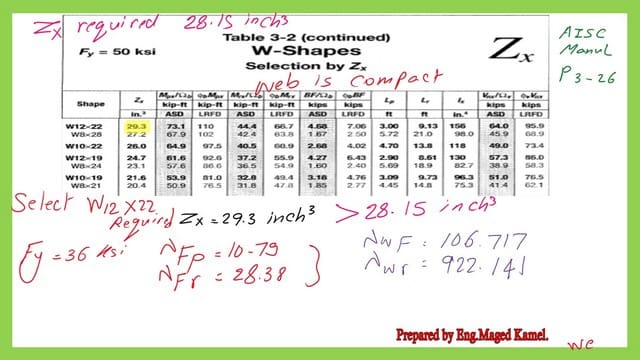 Zx required 28.15 inch³
AISC
Manul
P 3-26
Table 3-2 (continued)
W-Shapes
Selection by Zx
Fy = 50 ksi
Zx
web is compact
Shape Zx Mpx/Ωb ϕbMpx Mrx/Ωb ϕbMrx BF/Ωb ϕbBF Lp Lr Ix Vnx/Ωv ϕvVnx
kip-ft kip-ft kip-ft kip-ft kips kips kips kips
in.³ ASD LRFD ASD LRFD ASD LRFD ft ft in.⁴ ASD LRFD
W12×22 29.3 73.1 110 44.4 66.7 4.68 7.06 3.00 9.13 156 64.0 95.9
W8×28 27.2 67.9 102 42.4 63.8 1.67 2.50 5.72 21.0 98.0 45.9 68.9
W10×22 26.0 64.9 97.5 40.5 60.9 2.68 4.02 4.70 13.8 118 49.0 73.4
W12×19 24.7 61.6 92.6 37.2 55.9 4.27 6.43 2.90 8.61 130 57.3 86.0
W8×24 23.1 57.6 86.6 36.5 54.9 1.60 2.40 5.69 18.9 82.7 38.9 58.3
W10×19 21.6 53.9 81.0 32.8 49.4 3.18 4.76 3.09 9.73 96.3 51.0 76.5
W8×21 20.4 50.9 76.5 31.8 47.8 1.85 2.77 4.45 14.8 75.3 41.4 62.1
Select W12X22
Required Zx = 29.3 inch³ > 28.15 inch³
Fy = 36 ksi
λFp = 10-79
λFr = 28.38
λwF = 106.717
λwr = 922.141
Prepared by Eng.Maged Kamel.
we